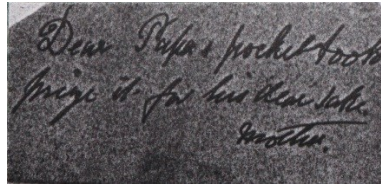 Dear Papa's pocket book
prize it for his dear sake.
Mother.